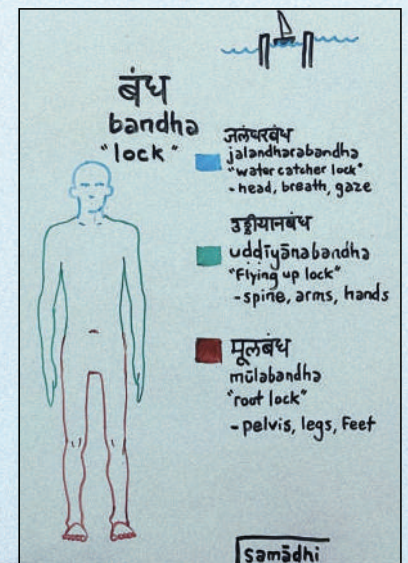 बंध
bandha
"lock"
जलंधरबंध
jalandharabandha
"water catcher lock"
- head, breath, gaze
उड्डीयानबंध
uḍḍīyānabandha
"Flying up lock"
- spine, arms, hands
मूलबंध
mūlabandha
"root lock"
- pelvis, legs, Feet
samādhi